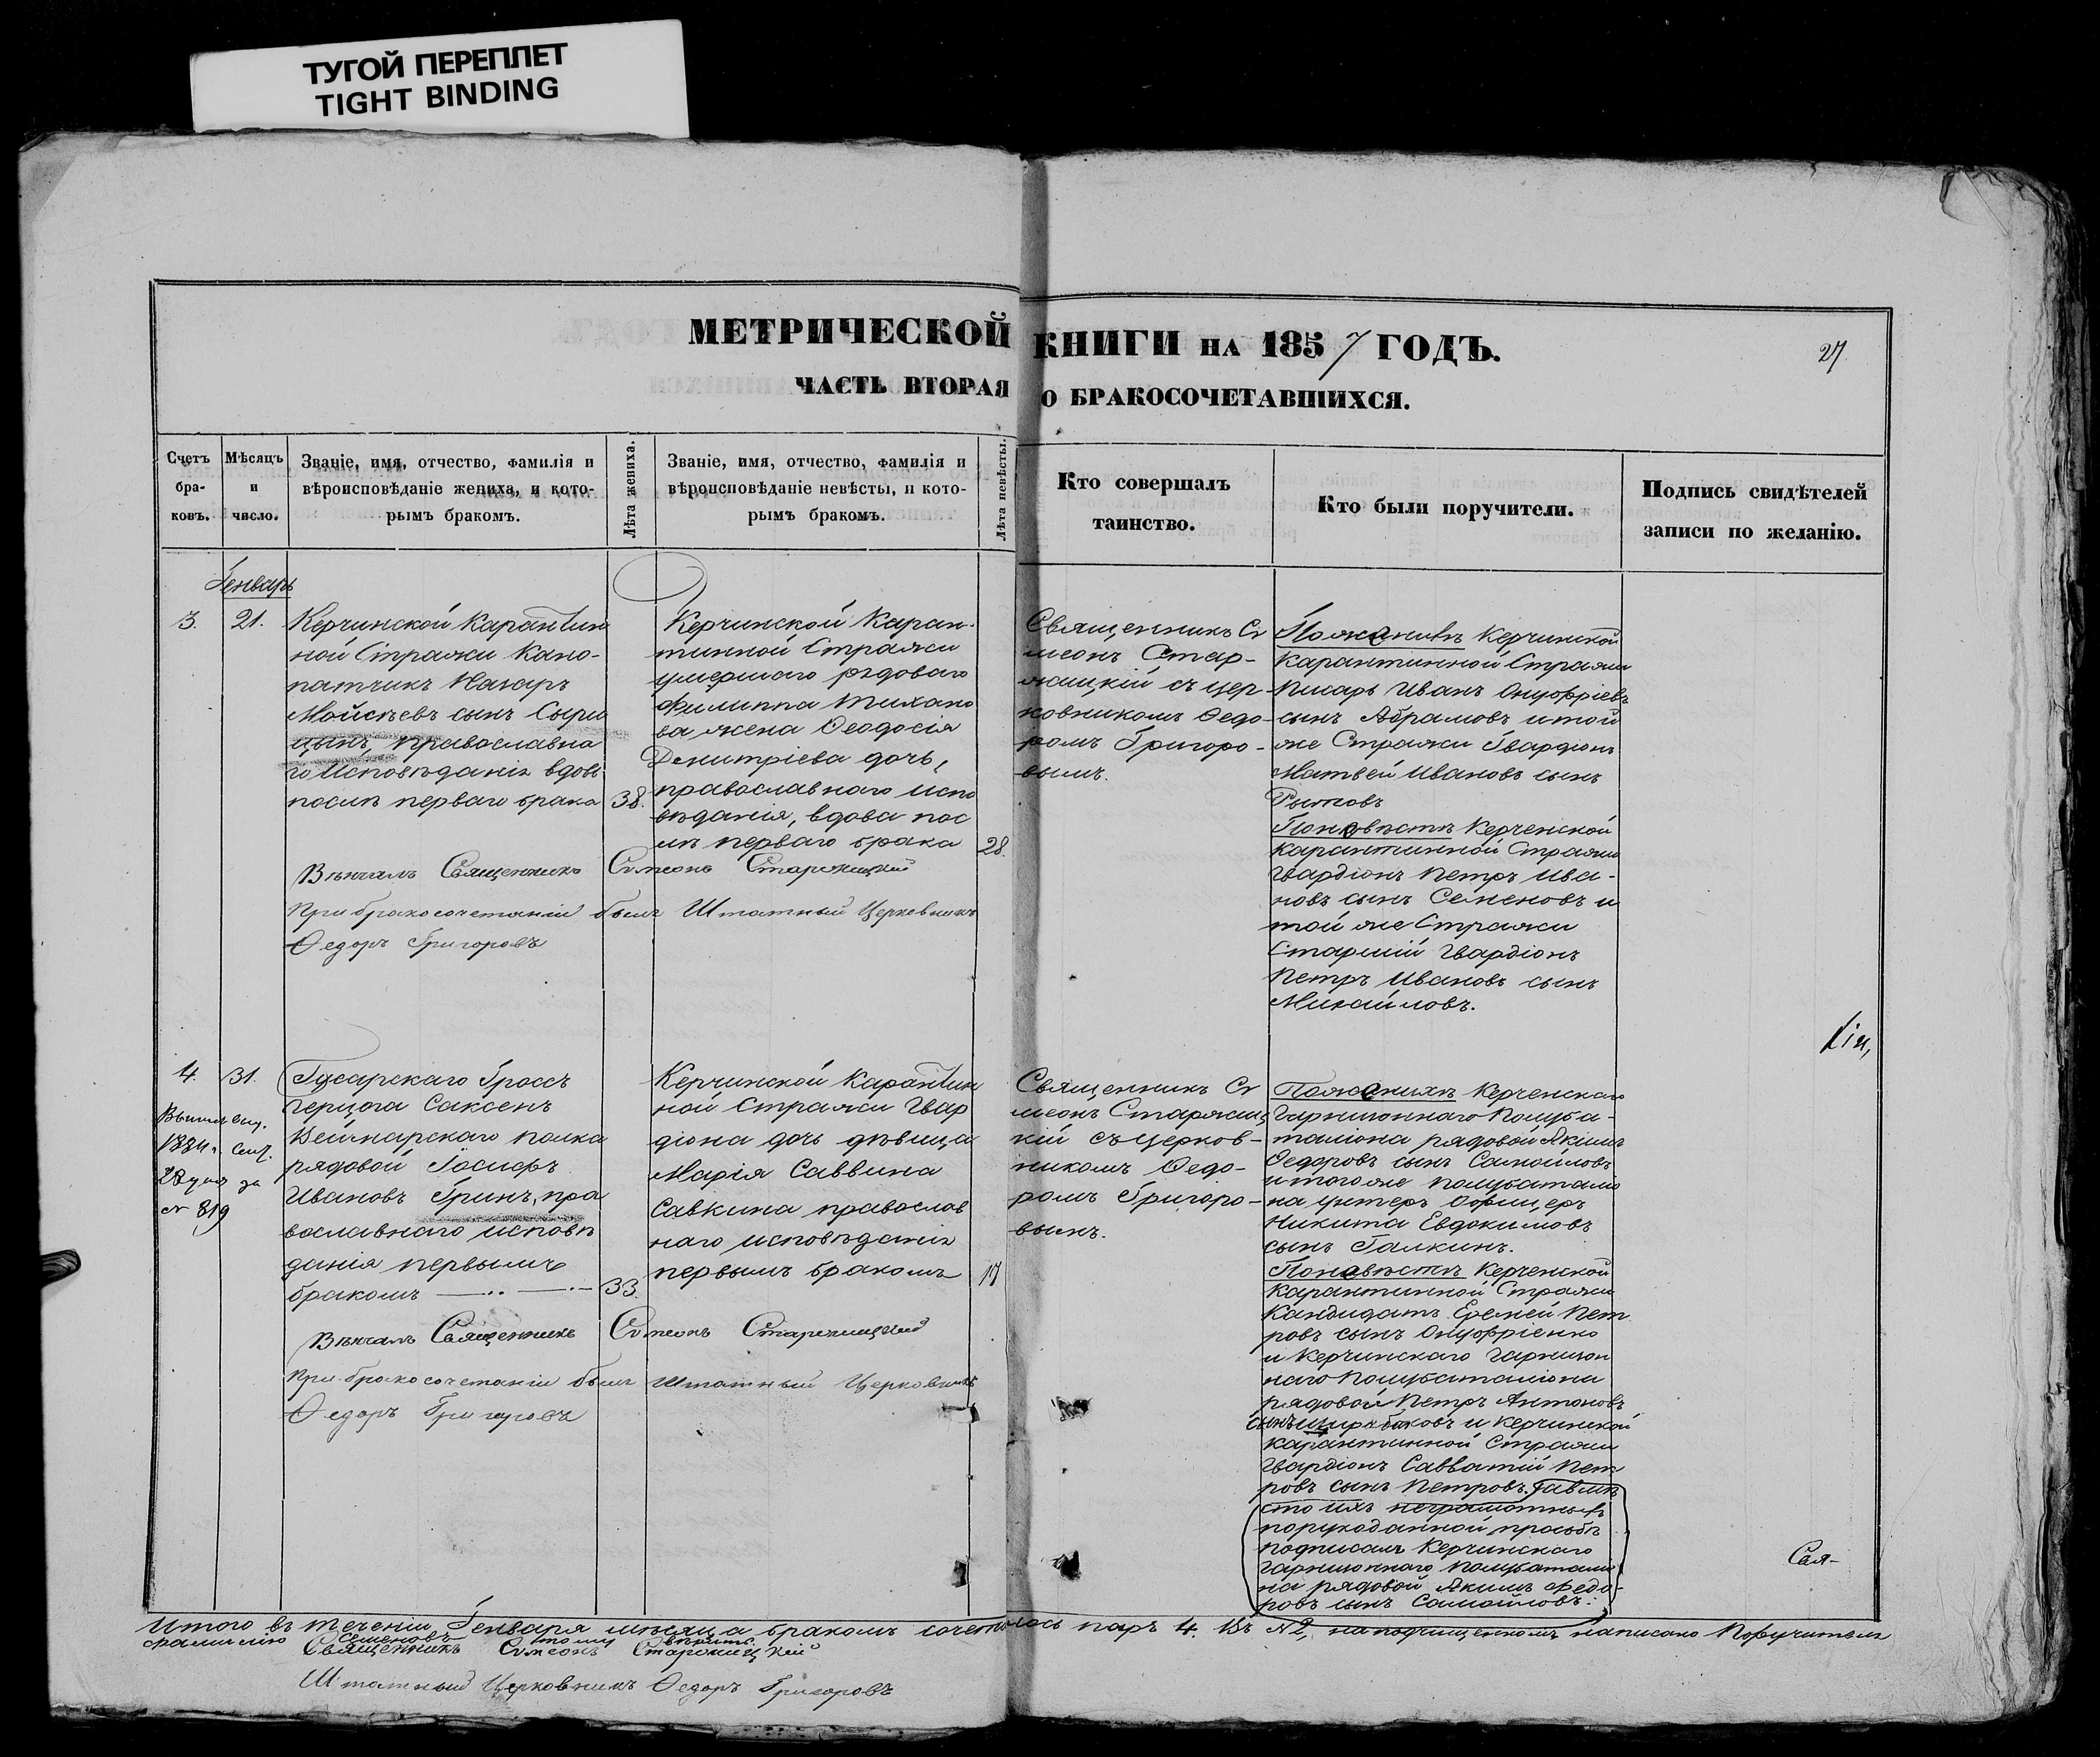 ТУГОЙ ПЕРЕПЛЕТ
TIGHT BINDING
МЕТРИЧЕСКОЙ КНИГИ НА 1857 ГОДЪ.
27
ЧАСТЬ ВТОРАЯ О БРАКОСОЧЕТАВШИХСЯ.
Счетъ
бра-
ковъ.
Мѣсяцъ
и
число.
Званіе, имя, отчество, фамилія и
вѣроисповѣданіе жениха, и кото-
рымъ бракомъ.
Лѣта жениха.
Званіе, имя, отчество, фамилія и
вѣроисповѣданіе невѣсты, и кото-
рымъ бракомъ.
Лѣта невѣсты.
Кто совершалъ
таинство.
Кто были поручители.
Подпись свидѣтелей
записи по желанію.
Генварь
3.
21.
Керчинской Карантин
ной Стражи Кано-
патчикъ Назаръ
Мойсѣевъ сынъ
цынъ, православна
го Исповѣданія вдовъ
послѣ перваго брака
38.
Керчинской Каран-
тинной Стражи
умершаго рядоваго
Филиппа Тихано
ва жена Феодосія
Димитріева дочь,
православнаго испо
вѣданія, вдова пос
лѣ перваго брака
28.
Священникъ Сѵ
меонъ Стар-
жицкій съ цер-
ковникомъ Ѳедо-
ромъ Григоро-
вымъ.
По Женихѣ Керчинской
Карантинной Стражи
Писарь Иванъ Онуфріевъ
сынъ Абрамовъ и той
же Стражи Гвардіонъ
Матвей Ивановъ сынъ
Рытовъ
По невѣстѣ Керченской
Карантинной Стражи
Гвардіонъ Петръ Ива-
новъ сынъ Семеновъ и
той же Стражи
Старшій Гвардіонъ
Петръ Ивановъ сынъ
Михайловъ.
Вѣнчалъ Священникъ Сѵмеонъ Старжицкій
При бракосочетаніи былъ Штатный Церковникъ
Ѳедоръ Григоровъ
4.
31.
28 за
№ 819
Гусарскаго Гроссъ
Герцога Саксенъ
Веймарскаго полка
рядовой Іосифъ
Ивановъ Гринъ, пра
вославнаго исповѣ
данія первымъ
бракомъ
33.
Керчинской Карантин
ной Стражи Гвар
діона дочь дѣвица
Марія Саввина
Савкина православ
наго исповѣданія
первымъ бракомъ
17
Священникъ Сѵ
меонъ Старжиц
кій съ Церков-
никомъ Ѳедо-
ромъ Григоро-
вымъ.
По Женихѣ Керченскаго
Гарнизоннаго Полуба-
таліона рядовой Якимъ
Ѳедоровъ сынъ Самойловъ
и того же полубаталіо
на унтеръ Офицеръ
Никита Евдокимовъ
сынъ Галкинъ.
По невѣстѣ Керченской
Карантинной Стражи
Кандидатъ Еремей Пет
ровъ сынъ Онуфріенко
и Керчинскаго Гарнизон
наго Полубаталіона
рядовой Петръ Антоновъ
сынъ и Керчинской
Карантинной Стражи
Гвардіонъ Савватій Пет
ровъ сынъ Петровъ,
сто ихъ неграмотныхъ
порукоданной прозьбѣ
подписалъ Керчинскаго
Гарнизоннаго Полубаталіо
на рядовой Якимъ Ѳедо-
ровъ сынъ Самойловъ.
Вѣнчалъ Священникъ Сѵмеонъ Старжицкій
При бракосочетаніи былъ Штатный Церковникъ
Ѳедоръ Григоровъ
Итого въ теченіи Генваря мѣсяца бракомъ сочеталось паръ 4. Въ № 2, написано Поручитель
фамилію Семеновъ тому вѣрить.
Священникъ Сѵмеонъ Старжицкій
Штатный Церковникъ Ѳедоръ Григоровъ